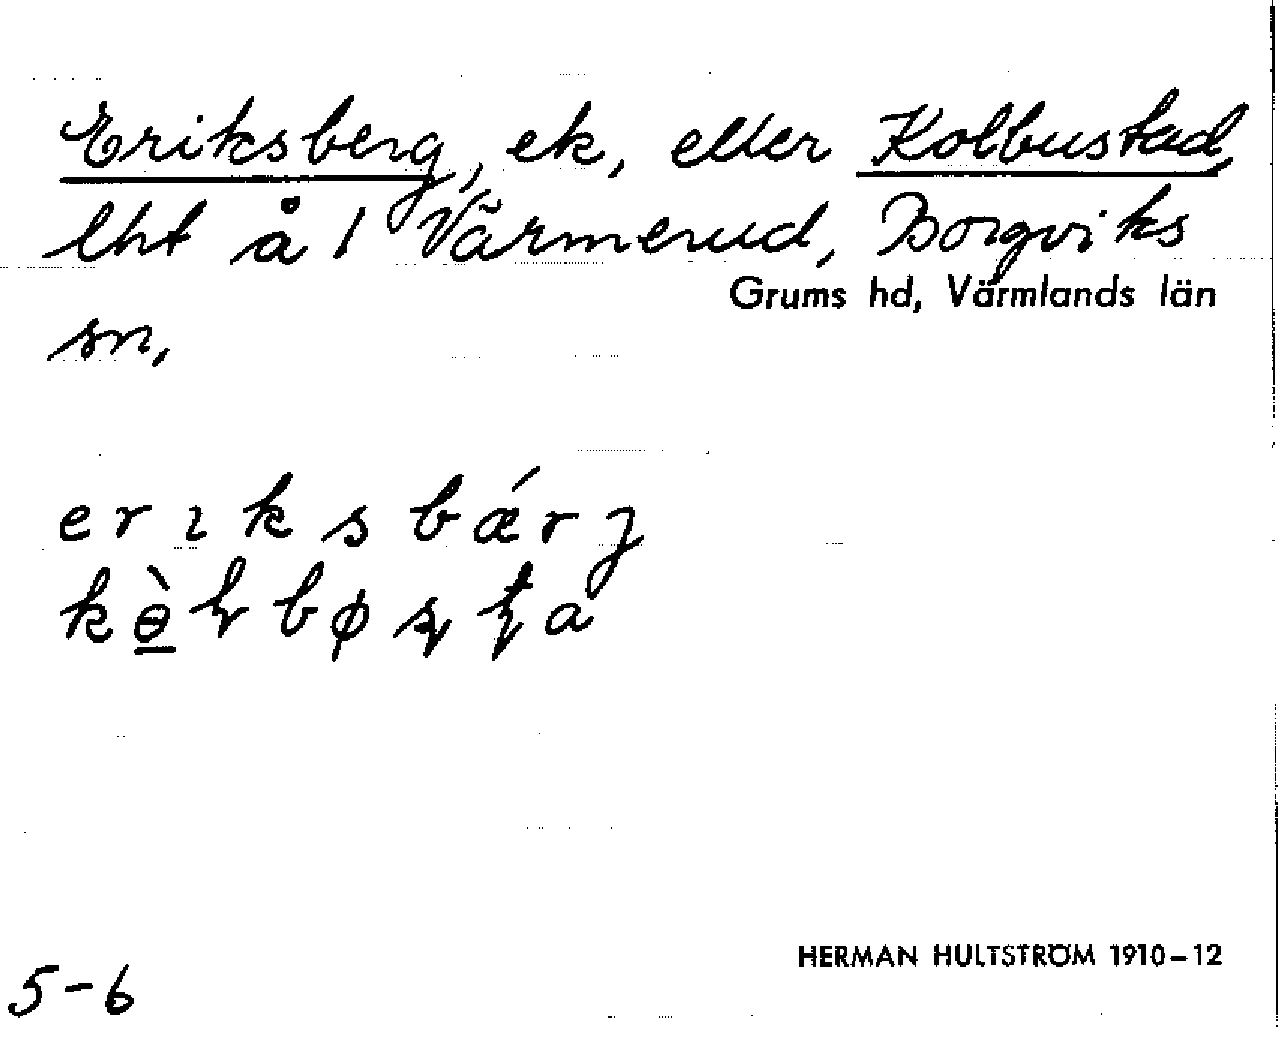 Eriksberg, ek, eller Kolbustad,
lht å 1 Värmerud, Borgviks
Grums hd, Värmlands län
sn,
erıksbǽrj
5-6
HERMAN HULTSTRÖM 1910-12